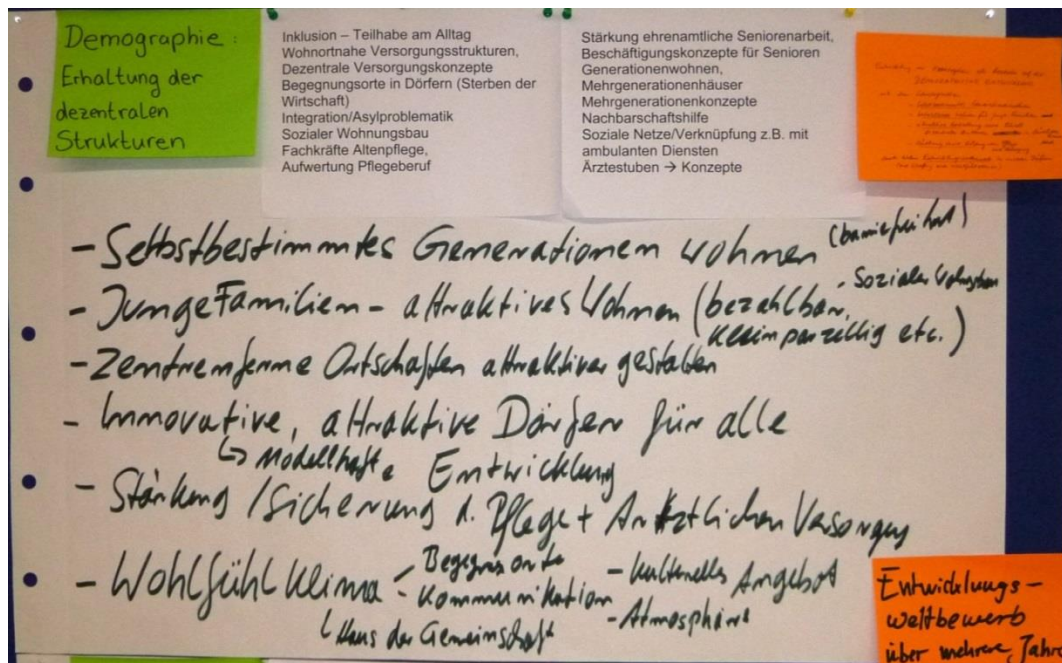 Demographie:
Erhaltung der
dezentralen
Strukturen
Inklusion – Teilhabe am Alltag
Wohnortnahe Versorgungsstrukturen,
Dezentrale Versorgungskonzepte
Begegnungsorte in Dörfern (Sterben der
Wirtschaft)
Integration/Asylproblematik
Sozialer Wohnungsbau
Fachkräfte Altenpflege,
Aufwertung Pflegeberuf
Stärkung ehrenamtliche Seniorenarbeit,
Beschäftigungskonzepte für Senioren
Generationenwohnen,
Mehrgenerationenhäuser
Mehrgenerationenkonzepte
Nachbarschaftshilfe
Soziale Netze/Verknüpfung z.B. mit
ambulanten Diensten
Ärztestuben → Konzepte
- Selbstbestimmtes Generationen wohnen (barrierefreiheit)
- Junge Familien - attraktives Wohnen (bezahlbar,
- Sozialer Wohnungsbau
kleinparzellig etc.)
- Zentrenferne Ortschaften attraktiver gestalten
- Innovative, attraktive Dörfer für alle
↳ Modellhafte Entwicklung
- Stärkung / Sicherung d. Pflege + Ärztlichen Versorgung
- Wohlfühlklima - Begegnsorte - kulturelles Angebot
- Kommunikation - Atmosphäre
Haus der Gemeinschaft
Entwicklungs-
wettbewerb
über mehrere Jahre